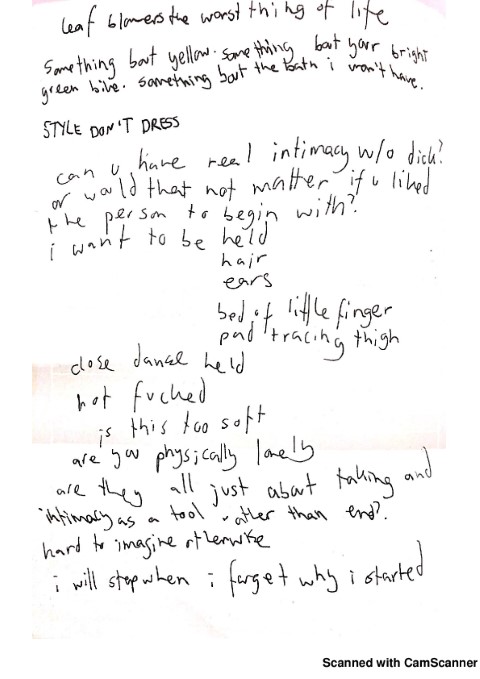 leaf blowers the worst thing of life
Something bout yellow. Something bout your bright
green bike. something bout the bath i won't have.
STYLE DON'T DRESS
can u have real intimacy w/o dick?
or would that not matter if u liked
the person to begin with?
i want to be held
hair
ears
bed of little finger
pad tracing thigh
close dance held
not fucked
is this too soft
are you physically lonely
are they all just about taking and
intimacy as a tool rather than end?
hard to imagine otherwise
i will stop when i forget why i started
Scanned with CamScanner